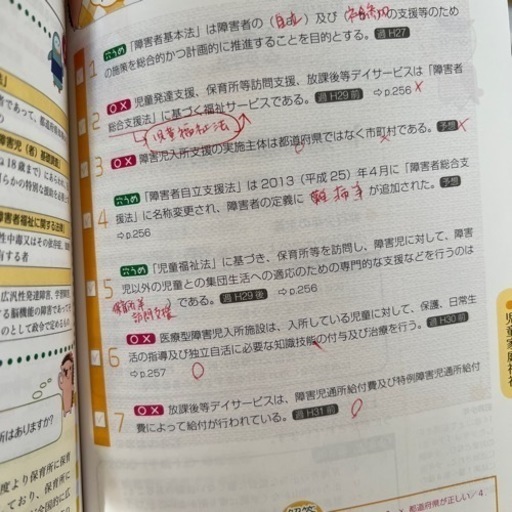 1 穴うめ 「障害者基本法」は障害者の(自立)及び の支援等のため
の施策を総合的かつ計画的に推進することを目的とする。過H27
2 ○× 児童発達支援、保育所等訪問支援、放課後等デイサービスは「障害者
総合支援法」に基づく福祉サービスである。過H29前 ⇨p.256 ×
児童福祉法
3 ○× 障害児入所支援の実施主体は都道府県ではなく市町村である。予想 ×
4 穴うめ 「障害者自立支援法」は2013(平成25)年4月に「障害者総合支
援法」に名称変更され、障害者の定義に 難病等 が追加された。予想
⇨p.256
5 穴うめ 「児童福祉法」に基づき、保育所等を訪問し、障害児に対して、障害
児以外の児童との集団生活への適応のための専門的な支援などを行うのは
保育所等訪問支援 )である。過H29後 ⇨p.256
6 ○× 医療型障害児入所施設は、入所している児童に対して、保護、日常生
活の指導及び独立自活に必要な知識技能の付与及び治療を行う。過H30前
⇨p.257 ○
7 ○× 放課後等デイサービスは、障害児通所給付費及び特例障害児通所給付
費によって給付が行われている。過H31前 ○
者であって、都道府県
障害児(者)基礎調査
障害者福祉に関する法律
性中毒又はその依存症、
有する者
広汎性発達障害、学習障害
所はありますか?
度より保育所に保育
ており、保育所に
児童家庭福祉
× 都道府県が正しい/4.